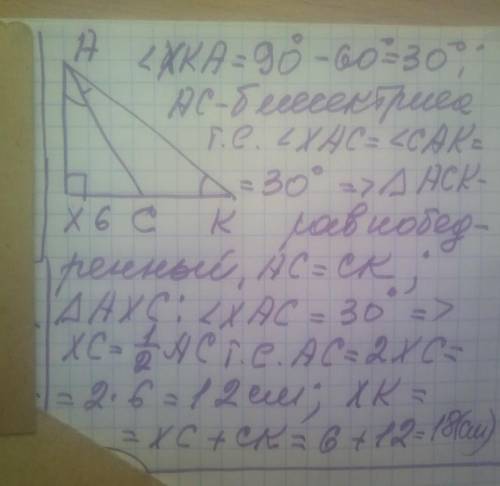 A
∠XKA = 90° - 60° = 30°;
AC - биссектриса
т.е. ∠XAC = ∠CAK =
= 30° => △ACK -
X 6 C K
равнобед-
ренный, AC = CK;
△AXC: ∠XAC = 30° =>
XC = 1/2 AC т.е. AC = 2XC =
= 2·6 = 12 см; XK =
= XC + CK = 6 + 12 = 18(см)